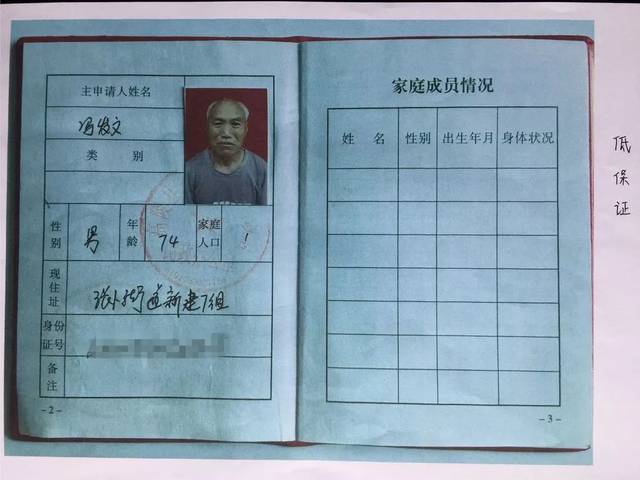 主申请人姓名
冯发文
类 别
性别 男 年龄 74 家庭人口 1
现住址 张卜街道新建7组
身份证号
备注
-2-
家庭成员情况
姓 名 性别 出生年月 身体状况
-3-
低保证